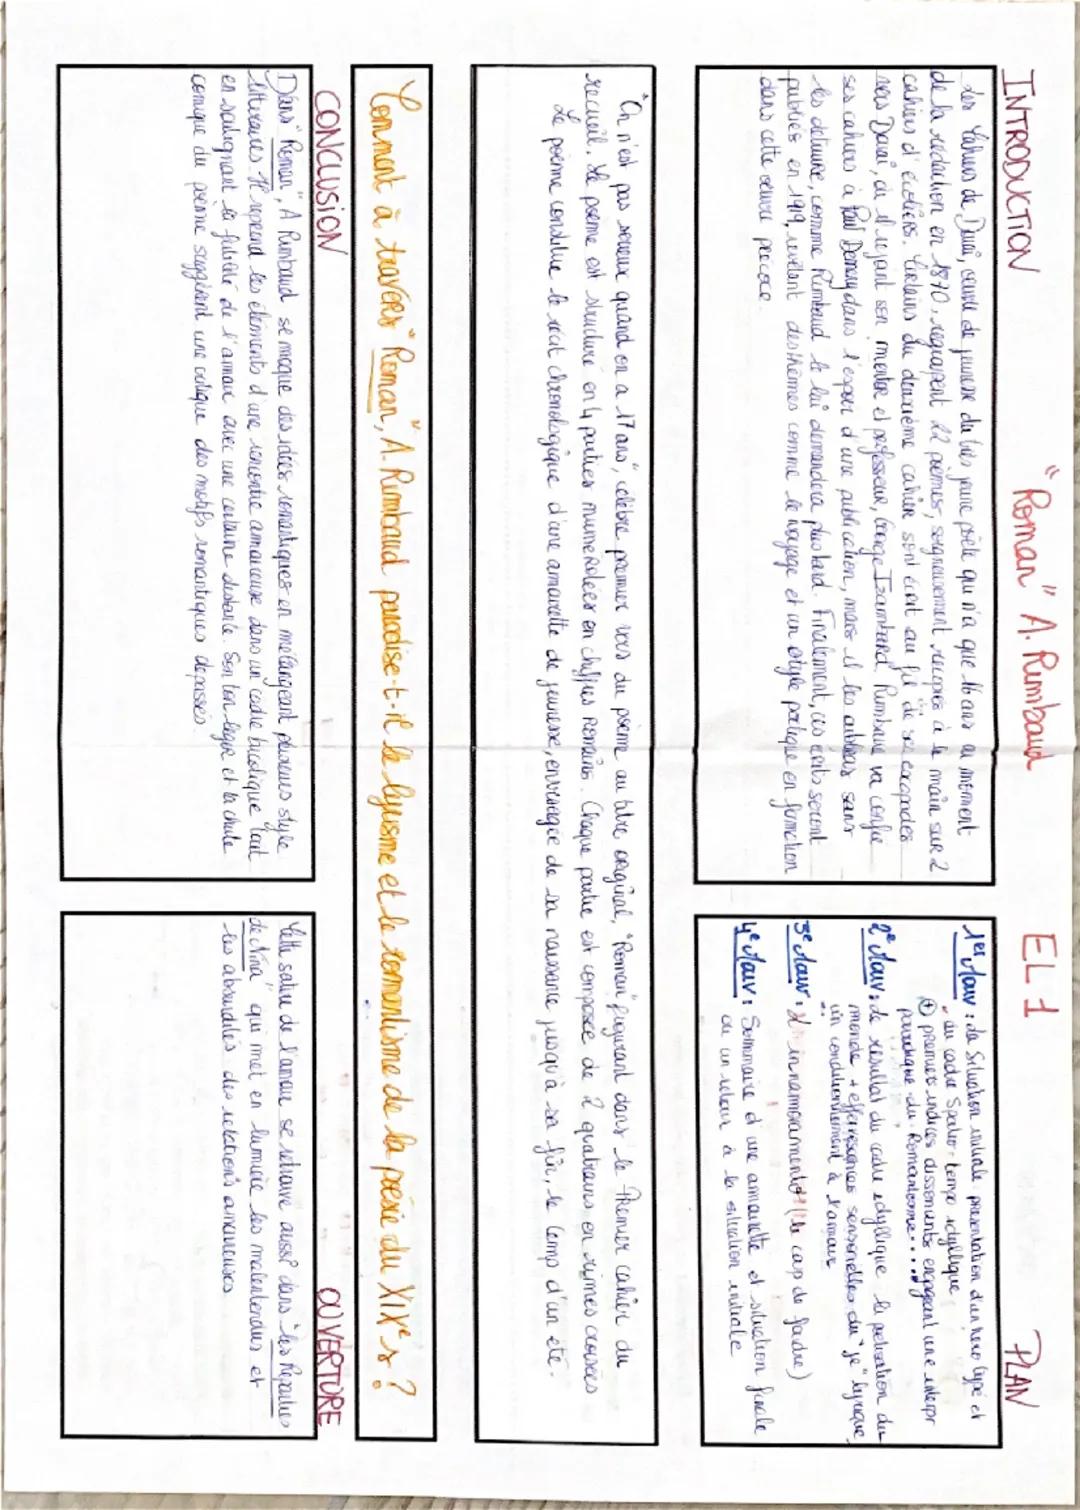 INTRODUCTION
"Roman" A. Rimbaud
EL 1
PLAN
Les Cahiers de Douai, œuvre de jeunesse du très jeune poète qui n'a que 16 ans au moment
de la rédaction en 1870, regroupent 22 poèmes, soigneusement recopiés à la main sur 2
cahiers d'écoliers. Certains du deuxième cahier sont écrit au fil de ses escapades
vers Douai, où il rejoint son mentor et professeur, George Izambard. Rimbaud va confie
ses cahiers à Paul Demeny dans l'espoir d'une publication, mais il les oubliera sans
les détruire, comme Rimbaud le lui demandera plus tard. Finalement, ces écrits seront
publiés en 1919, révélant des thèmes comme le voyage et un style poétique en formation
dans cette œuvre précoce.
1er Mouv : La Situation initiale présentation d'un héro typé et
au cadre Spatio-tempo idyllique
⊕ premiers indices dissonants engageant une interpr
parodique du Romantisme....
2e Mouv : le résultat du cadre idyllique la perception du
monde + effervescences sensorielles du "je" lyrique,
un conditionnement à l'amour
3e Mouv : L'innamoramento (le cap de foudre)
4e Mouv : Sommaire d'une amourette et situation finale
ou un retour à la situation initiale
"On n'est pas sérieux quand on a 17 ans", célèbre premier vers du poème au titre original, "Roman" figurant dans le Premier cahier du
recueil. Le poème est structuré en 4 parties numérotées en chiffres romains. Chaque partie est composée de 2 quatrains en rimes croisées
Le poème constitue le récit chronologique d'une amourette de jeunesse, envisagée de sa naissance jusqu'à sa fin, le temp d'un été.
Comment à travers "Roman", A. Rimbaud parodise-t-il le lyrisme et le romantisme de la poésie du XIXe s ?
CONCLUSION
OUVERTURE
Dans "Roman", A Rimbaud se moque des idées romantiques en mélangeant plusieurs style
littéraires. Il reprend les éléments d'une rencontre amoureuse dans un cadre bucolique tout
en soulignant la futilité de l'amour avec une certaine distance. Son ton léger et la chute
comique du poème suggèrent une critique des motifs romantiques dépassés.
Cette satire de l'amour se retrouve aussi dans "les Reparties
de Nina" qui met en lumière les malentendus et
les absurdités des relations amoureuses